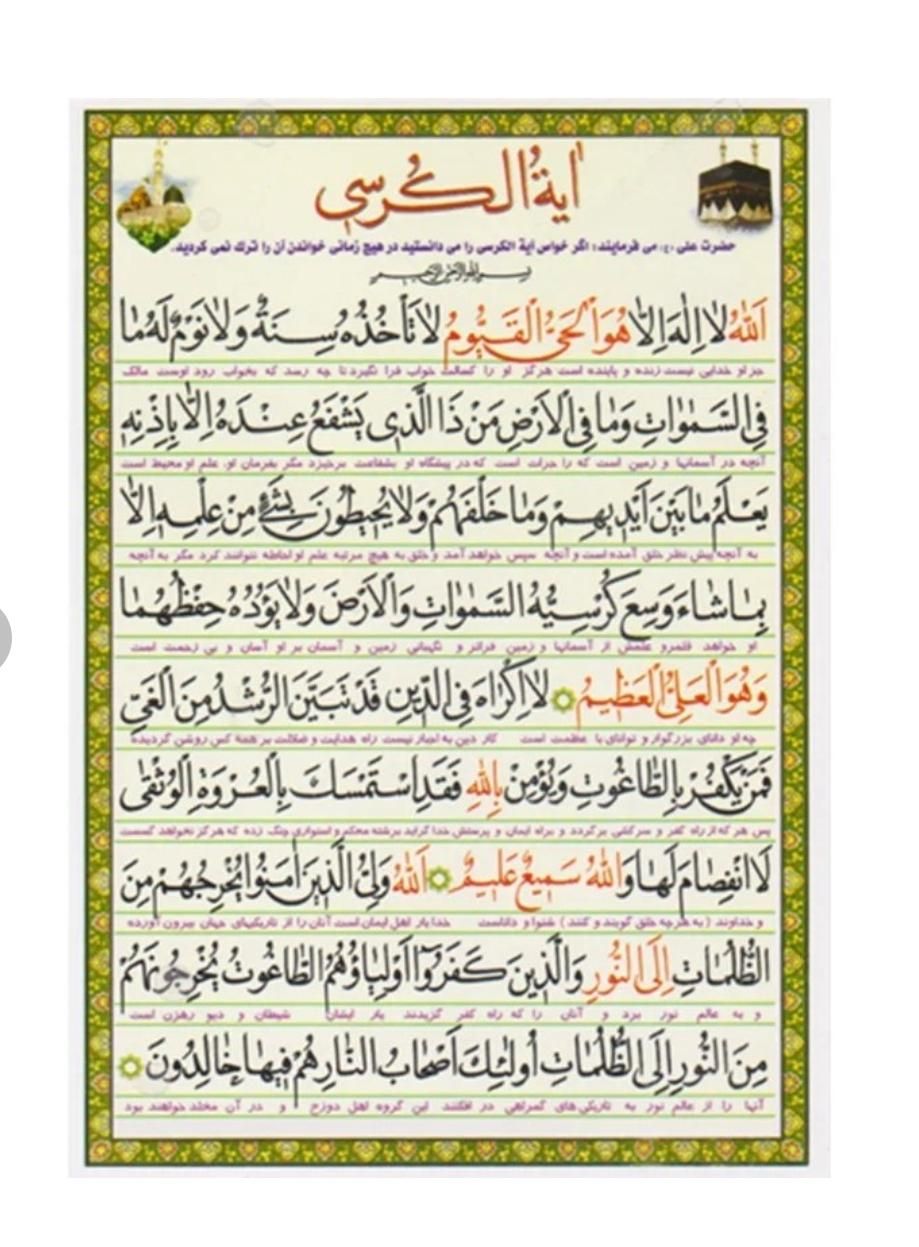 اٰیةُ الکُرسی
حضرت علی (ع) می فرمایند: اگر خواص آیة الکرسی را می دانستید در هیچ زمانی خواندن آن را ترک نمی کردید.
بسم الله الرحمن الرحیم
اَللّٰهُ لَا اِلٰهَ اِلَّا هُوَ الْحَیُّ الْقَیُّومُ لَا تَأْخُذُهُ سِنَةٌ وَلَا نَوْمٌ لَهُ مَا
جز او خدایی نیست زنده و پاینده است هرگز او را کسالت خواب فرا نگیرد تا چه رسد که بخواب رود اوست مالک
فِی السَّمٰوَاتِ وَمَا فِی الْاَرْضِ مَنْ ذَا الَّذِی یَشْفَعُ عِنْدَهُ اِلَّا بِاِذْنِهِ
آنچه در آسمانها و زمین است که را جرات است که در پیشگاه او بشفاعت برخیزد مگر بفرمان او، علم او محیط است
یَعْلَمُ مَا بَیْنَ اَیْدِیهِمْ وَمَا خَلْفَهُمْ وَلَا یُحِیطُونَ بِشَیْءٍ مِنْ عِلْمِهِ اِلَّا
به آنچه پیش نظر خلق آمده است و آنچه سپس خواهد آمد و خلق به هیچ مرتبه علم او احاطه نتوانند کرد مگر به آنچه
بِمَا شَاءَ وَسِعَ کُرْسِیُّهُ السَّمٰوَاتِ وَالْاَرْضَ وَلَا یَؤُدُهُ حِفْظُهُمَا
او خواهد قلمرو علمش از آسمانها و زمین فراتر و نگهبانی زمین و آسمان بر او آسان و بی زحمت است
وَهُوَ الْعَلِیُّ الْعَظِیمُ لَا اِکْرَاهَ فِی الدِّینِ قَدْ تَبَیَّنَ الرُّشْدُ مِنَ الْغَیِّ
چه او دانای بزرگوار و توانای با عظمت است کار دین به اجبار نیست راه هدایت و ضلالت بر همه کس روشن گردیده
فَمَنْ یَکْفُرْ بِالطَّاغُوتِ وَیُؤْمِنْ بِاللّٰهِ فَقَدِ اسْتَمْسَکَ بِالْعُرْوَةِ الْوُثْقٰی
پس هر که از راه کفر و سرکشی برگردد و براه ایمان و پرستش خدا گراید برشته محکم و استواری چنگ زده که هرگز نخواهد گسست
لَا انْفِصَامَ لَهَا وَاللّٰهُ سَمِیعٌ عَلِیمٌ اَللّٰهُ وَلِیُّ الَّذِینَ اٰمَنُوا یُخْرِجُهُمْ مِنَ
و خداوند (به هر چه خلق گویند و کنند) شنوا و داناست خدا یار اهل ایمان است آنان را از تاریکیهای جهان بیرون آورده
الظُّلُمَاتِ اِلَی النُّورِ وَالَّذِینَ کَفَرُوا اَوْلِیَاؤُهُمُ الطَّاغُوتُ یُخْرِجُونَهُمْ
و به عالم نور برد و آنان را که راه کفر گزیدند یار ایشان شیطان و دیو رهزن است
مِنَ النُّورِ اِلَی الظُّلُمَاتِ اُولٰئِکَ اَصْحَابُ النَّارِ هُمْ فِیهَا خَالِدُونَ
آنها را از عالم نور به تاریکی های گمراهی در افکنند این گروه اهل دوزخ و در آن مخلد خواهند بود